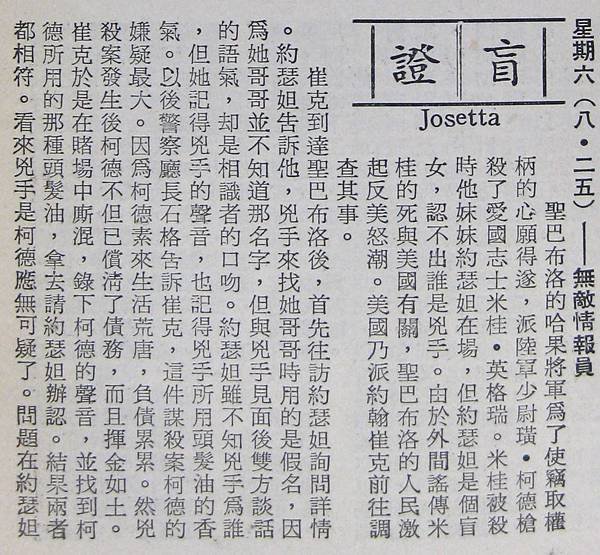 星期六(八•二五)——無敵情報員
盲證
Josetta
聖巴布洛的哈果將軍爲了使竊取權
柄的心願得遂,派陸軍少尉璜•柯德槍
殺了愛國志士米桂•英格瑞。米桂被殺
時他妹妹約瑟妲在場,但約瑟妲是個盲
女,認不出誰是兇手。由於外間謠傳米
桂的死與美國有關,聖巴布洛的人民激
起反美怒潮。美國乃派約翰崔克前往調
查其事。
崔克到達聖巴布洛後,首先往訪約瑟妲詢問詳情
。約瑟妲告訴他,兇手來找她哥哥時用的是假名,因
爲她哥哥並不知道那名字,但與兇手見面後雙方談話
的語氣,却是相識者的口吻。約瑟妲雖不知兇手爲誰
,但她記得兇手的聲音,也記得兇手所用頭髮油的香
氣。以後警察廳長石格告訴崔克,這件謀殺案柯德的
嫌疑最大。因爲柯德素來生活荒唐,負債累累。然兇
殺案發生後柯德不但已償清了債務,而且揮金如土。
崔克於是在賭場中廝混,錄下柯德的聲音,並找到柯
德所用的那種頭髮油,拿去請約瑟妲辦認。結果兩者
都相符。看來兇手是柯德應無可疑了。問題在約瑟妲